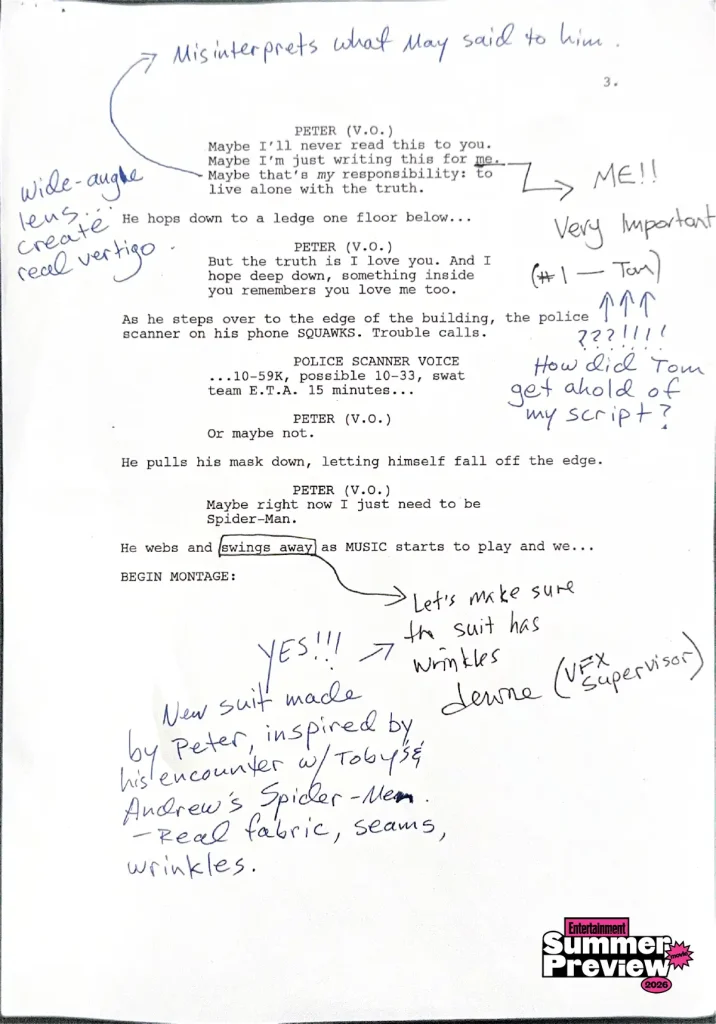 Misinterprets what May said to him.
3.
PETER (V.O.)
Maybe I'll never read this to you.
Maybe I'm just writing this for me.
Maybe that's my responsibility: to
live alone with the truth.
ME!!
Very Important
(#1 — Tom)
???!!!!
How did Tom
get ahold of
my script?
wide-angle
lens...
create
real vertigo.
He hops down to a ledge one floor below...
PETER (V.O.)
But the truth is I love you. And I
hope deep down, something inside
you remembers you love me too.
As he steps over to the edge of the building, the police
scanner on his phone SQUAWKS. Trouble calls.
POLICE SCANNER VOICE
...10-59K, possible 10-33, swat
team E.T.A. 15 minutes...
PETER (V.O.)
Or maybe not.
He pulls his mask down, letting himself fall off the edge.
PETER (V.O.)
Maybe right now I just need to be
Spider-Man.
He webs and swings away as MUSIC starts to play and we...
BEGIN MONTAGE:
Let's make sure
the suit has
wrinkles
(VFX
Supervisor)
YES!!!
New suit made
by Peter, inspired by
his encounter w/ Toby's &
Andrew's Spider-Men.
- Real fabric, seams,
wrinkles.
Entertainment
Summer
movie
Preview
2026